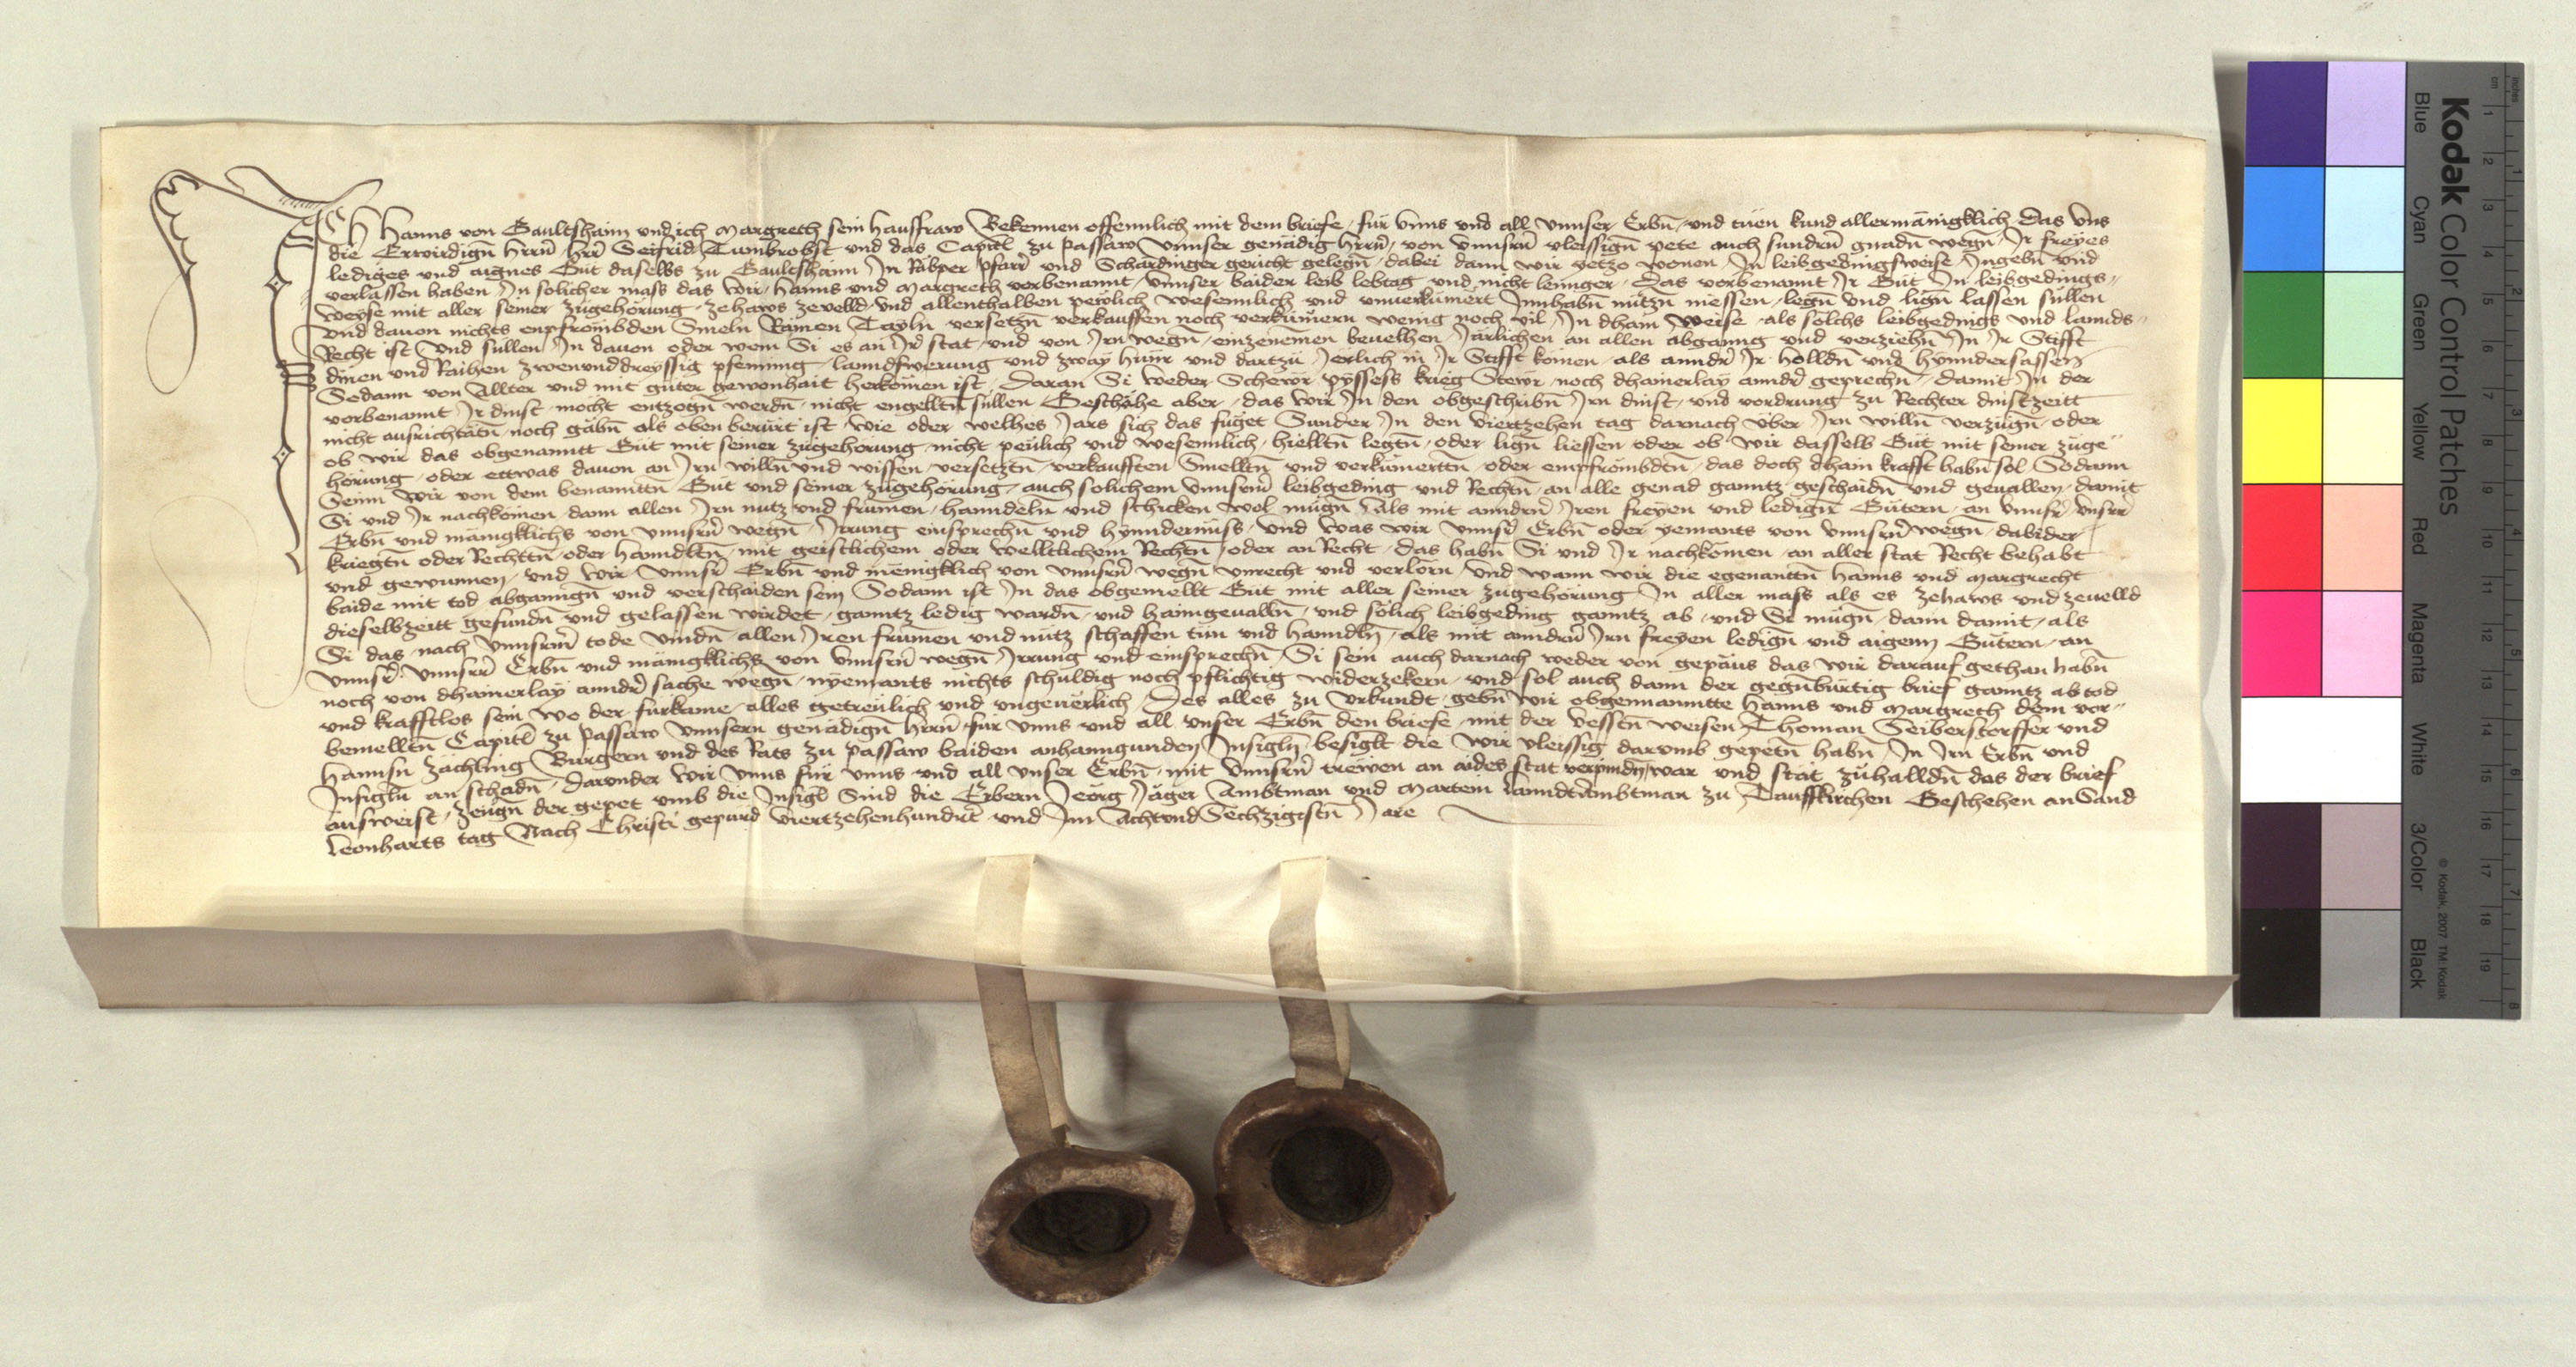 Ich Hanns von Gaultshaim und ich Margreth sein hausfraw Bekennen offennlich mit dem briefe, für unns und all unnser Erbn̄, und tuen kund allermänigklich, Das uns
die Erwirdign̄ herrn̄ herr Seifrid Tumbrobst und das Capitl zu passaw unnser genädig herrn̄, von unnsern̄ vleissign̄ pete auch sundrn̄ gnadn̄ wegn̄, Ir freyes
lediges und aigens Gut daselbs zu Gaultshaim In Räbper pfarr und Schärdinger gericht gelegn̄, dabei dann wir yetzo wonen, In leibgedingsweise Ingebn̄ und
verlassen haben In solicher mass das wir, Hanns und Margreth vorbenannt, unnser baider leib lebtag und nicht lennger, Das vorbenannt Ir Gut In leibgedings"
weyse mit aller seiner zugehörung, zehaws zevelld, und allenthalben pewlich wesennlich und unverkumert Innhabn̄ nutzn̄ niessen, legn̄ und lign̄ lassen sullen
und dauon nichts enpfrömbden Smeln Rämen Tayln versetzn̄ verkauffen noch verkümern wenig noch vil, In dhain weise, als solchs leibgedings und lannds"
Recht ist Und sullen In dauon oder wem Si es an Ir stat, und von Irn wegn̄, einzenemen beuelhen, Järlichen an allen abganng und verziehn̄ In Ir Stifft
dinen und Raihen zwenunddreyssig pfenning, lanndswerung und zway huner und dartzu Jerlich in Ir Stifft komen, als anndr Ir holldn̄ und hynndersassen
Sodann von Allter und mit guter gewonhait herkomen ist, Daran Si weder Schewr pyssess krieg Stewr, noch dhainerlay anndr geprechn̄, damit In der
vorbenannt Ir dinst, mocht entzogn̄ werdn̄, nicht engelltn̄ sullen Geschähe aber, das wir In den obgeschribn̄ Irn dinst, und vordrung zu Rechter dinstzeitt
nicht ausrichtätn̄, noch gäbn̄ als oben berürt ist, wie oder welhes Jars sich das füget Sunder In den viertzehen tag darnach über Irn willn̄ verzügn̄, oder
ob wir das obgenannt Gut mit seiner zugehörung, nicht peulich und wesennlich, hielltn̄ legtn̄, oder lign̄ liessen oder ob wir dasselb Gut mit seiner zuge"
hörung, oder ettwas dauon an Irn willn̄ und wissen, versetztn̄, verkaufften Smelltn̄ und verkümerttn̄, oder empfrömbdtn̄, das doch dhain krafft habn̄ sol, Sodann
Seinn wir von dem benanntn̄ Gut und seiner zugehörung, auch solichem unnserm̄ leibgeding und Rechtn̄, an alle genad ganntz geschaidn̄ und geuallen, damit
Si und Ir nachkomen, dann allen Irn nutz und frumen, hanndeln̄ und schicken wol mugn̄, als mit anndrn̄ Iren freyen und ledign̄ Gütern, an unnsr, unsrr
Erbn̄ und mänigklichs von unnsrn̄ wegn̄, Irrung einsprechn̄ und hynndernuss, und was wir unnsr Erbn̄ oder yemants von unnsrn̄ wegn̄, dabider
kriegtn̄ oder Rechttn̄, oder hanndltn̄, mit geistlichem oder welltlichem Rechtn̄, oder an Recht, das habn̄ Si und Ir nachkomen, an aller stat Recht behabt
und gewunnen, und wir unnsr Erbn̄ und mänigklich von unnsrn̄ wegn̄ unrecht und verlorn, und wann wir die egenanntn̄ Hanns und Margrecht
baide mit tod abganngn̄ und verschaiden sein Sodann ist In das obgemellt Gut mit aller seiner zugehörung In aller mass als es zehaws und zeuelld
dieselbzeitt gefundn̄ und gelassen wirdet, ganntz ledig wardn̄, und haimgeualln̄, und sölich leibgeding ganntz ab, und Si mugn̄, dann damit, als
Si das, nach unnserm̄ tode vindn̄, allen Iren frumen und nutz schaffen tun und hanndln̄, als mit anndrn̄ Irn freyen ledign̄ und aigenn Gütern, an
unnsr, unnsrr Erbn̄ und mänigklichs von unnsrn̄ wegn̄, Irrung und einsprechn̄, Si sein auch darnach weder von gepäus das wir darauf gethan habn̄
noch von dhainerlay anndr sache wegn̄, nyemants nichts schuldig noch pflichtig widerzekern, und sol auch dann der gegnbürtig brief ganntz ab tod
und krafftlos sein wo der fürkäme, alles getreulich und ungeuerlich, Des alles zu urkundt, gebn̄ wir obgenanntte Hanns und Margreth dem vor"
bemelltn̄ Capitl zu passaw unnsern genädign̄ herrn̄, für unns und all unser Erbn̄ den briefe, mit der vesstn̄ weisen Thoman Seiberstorffer und
Hannsn Zächling Burgern und des Rats zu passaw baiden anhanngunden Insigln̄, besiglt die wir vleissig darumb gepetn̄ habn̄, In Irn Erbn̄ und
Insigln̄ an schadn̄, Darunder wir unns für unns und all unser Erbn̄, mit unnsrn̄ trewen an aides stat verpindn̄, war und stät zuhalldn̄ das der brief
ausweist, Zeugn̄ der gepet umb die Insigl Sind die Erbern Jeorg Jäger Ambtman und Martein lanndtambtman zu Tauffkirchen Geschehen an Sand
Leonharts tag Nach Christi gepurd viertzehenhundert und Im Achtund Sechzigistn̄ Jare
Kodak Color Control Patches
Blue Cyan Green Yellow Red Magenta White 3/Color Black
© Kodak, 2007 TM: Kodak
cm 1 2 3 4 5 6 7 8 9 10 11 12 13 14 15 16 17 18 19
inches 1 2 3 4 5 6 7 8